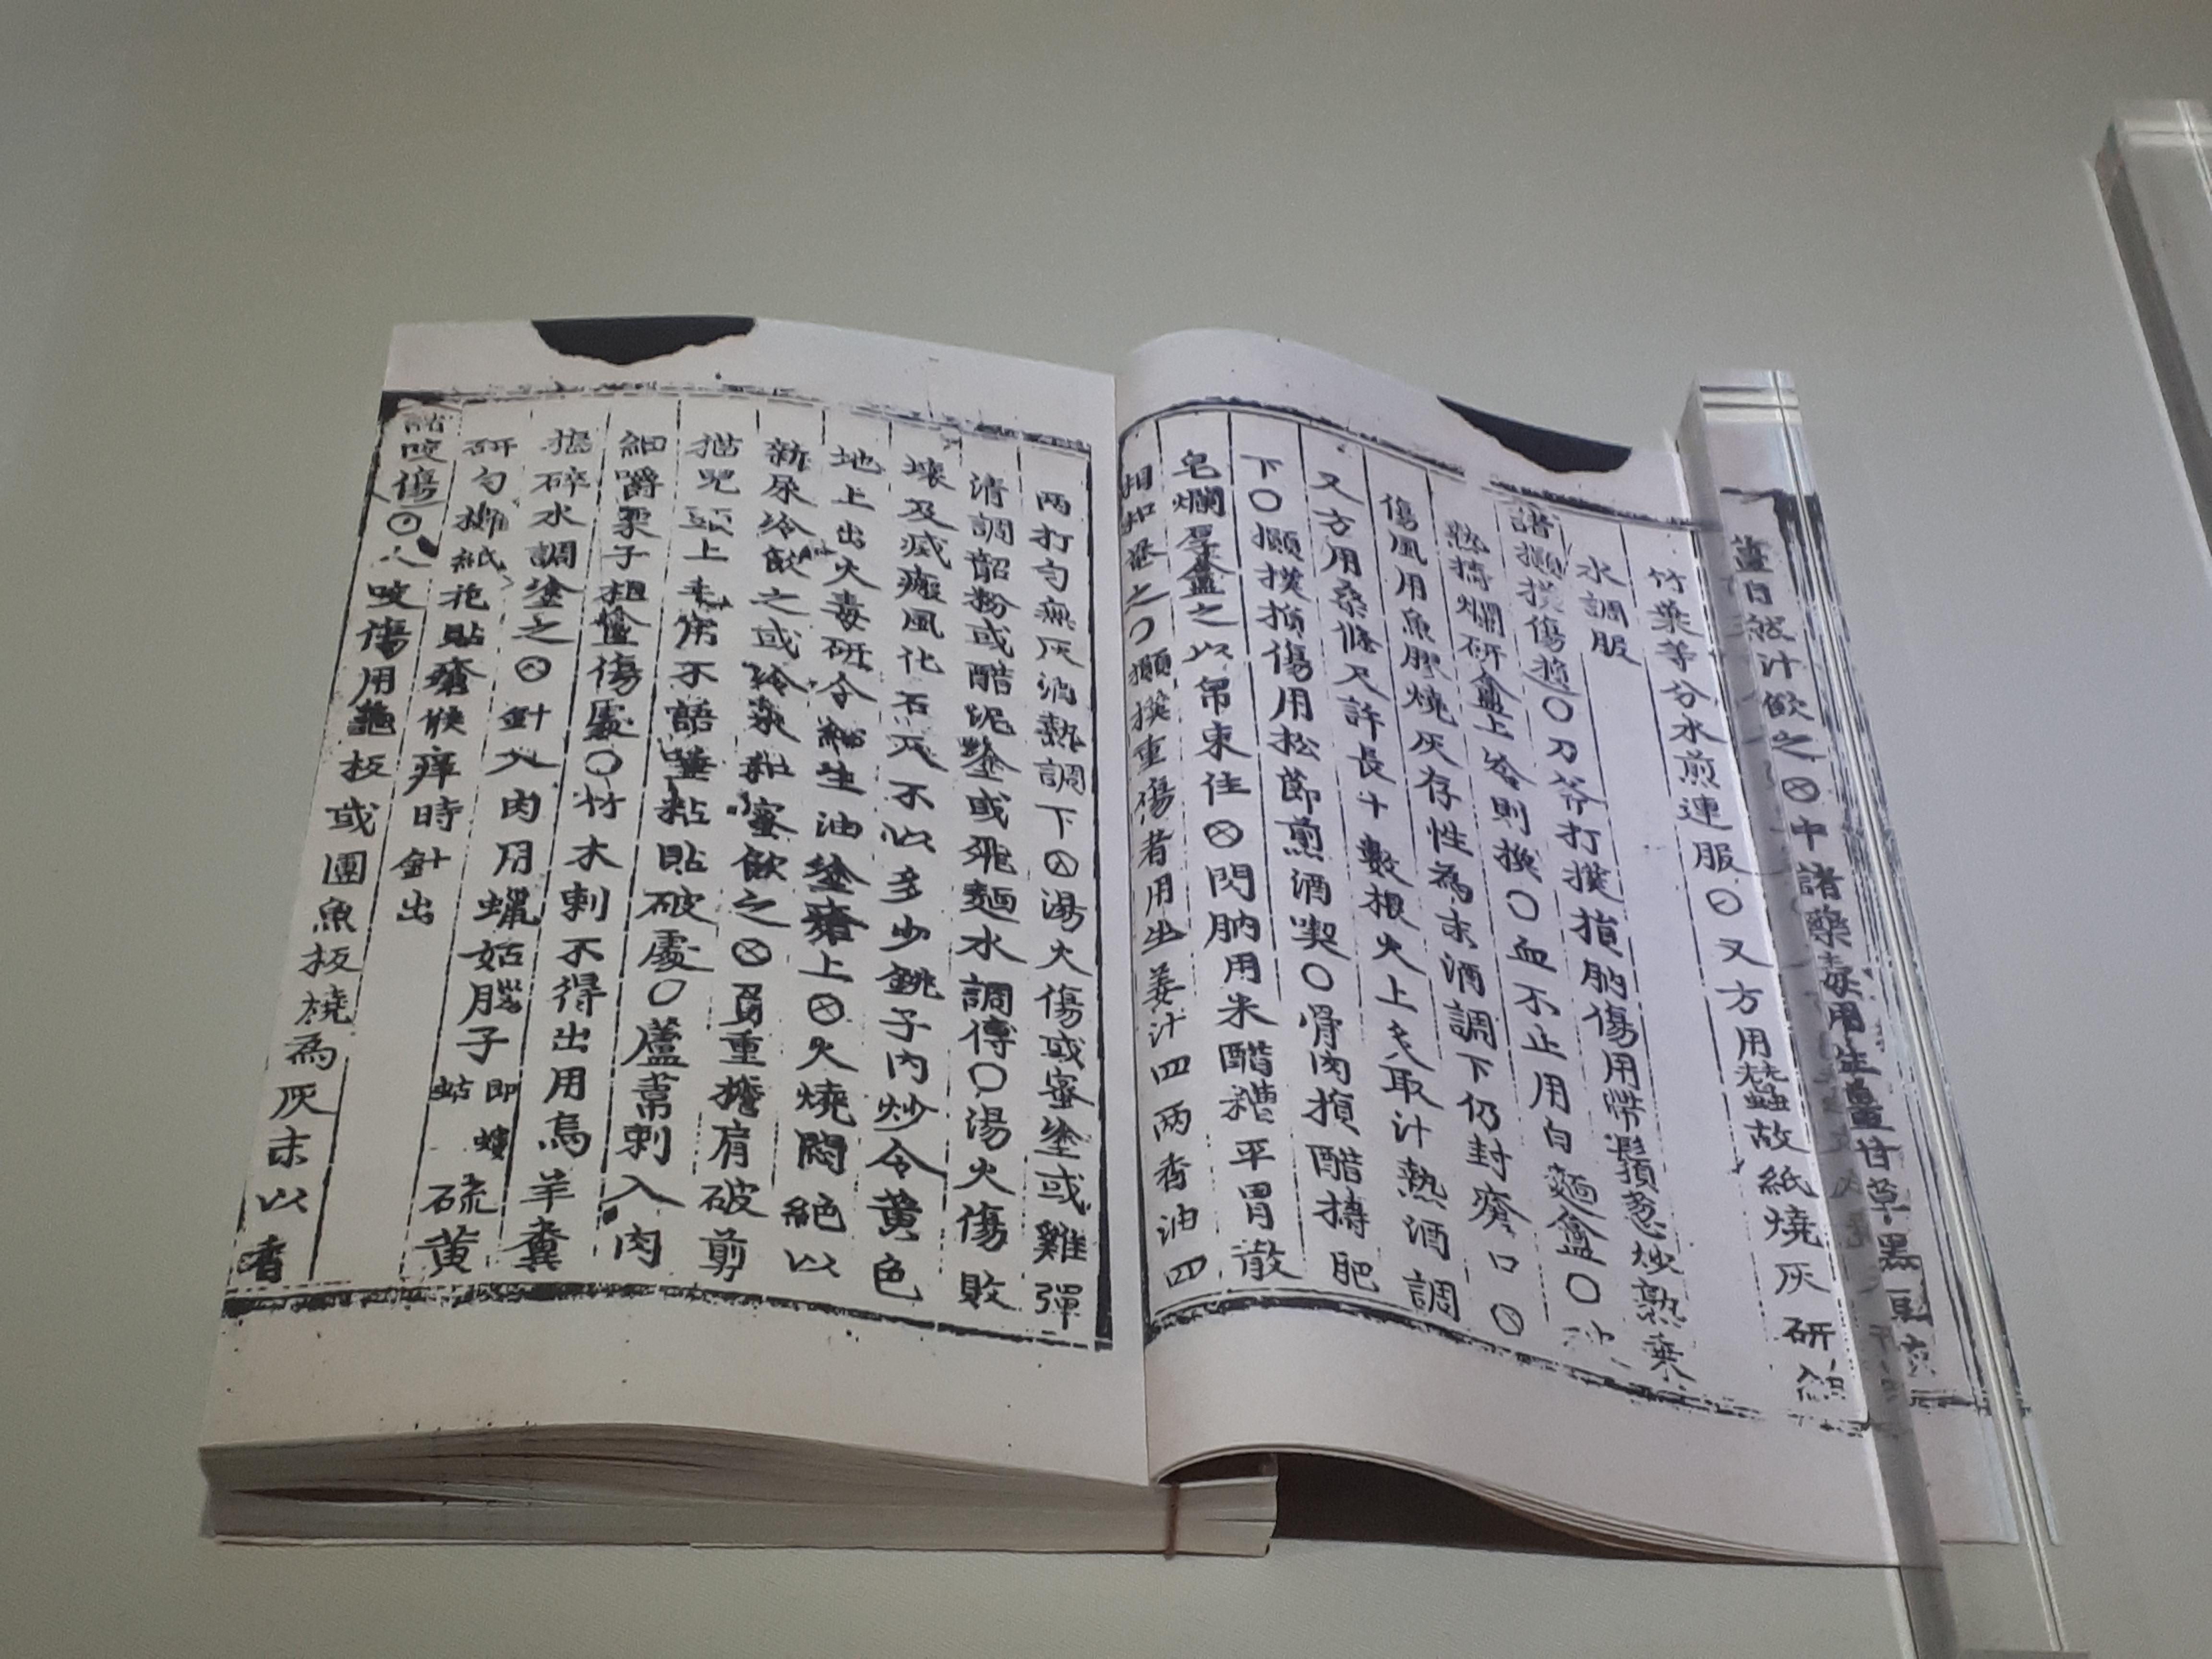 薑自然汁飲之⊗中諸藥毒用生薑甘草黑豆
竹葉等分水煎連服⊙又方用蠶故紙燒灰研
水調服
諸攧撲傷損〇刀斧打撲損肭傷用帶鬚葱炒熟乘
熱擣爛研盦上冷則換〇血不止用白麵盦〇
傷風用魚膠燒灰存性為末酒調下仍封瘡口
又方用桑條尺許長十數根火上炙取汁熱酒調
下〇攧撲損傷用松節煎酒喫〇骨肉損醋擣肥
皂爛厚盦之以帛束住⊗閃肭用米醋糟平胃散
相和盦之〇攧撲重傷者用生姜汁四兩香油四
兩打勻無灰酒熱調下⊗湯火傷或蜜塗或雞彈
清調韶粉或醋泥塗或飛麵水調傅〇湯火傷敗
壞及滅瘢風化石灰不以多少銚子內炒令黃色
地上出火毒研令細生油塗瘡上⊗火燒悶絕以
新尿冷飲之或冷水和蜜飲之⊗負重擔肩破剪
猫兒頭上毛用不語唾粘貼破處〇蘆葦刺入肉
細嚼栗子相盦傷處〇竹木刺不得出用烏羊糞
擣碎水調塗之⊗針入肉用蠟姑腦子硫黃
研勻攤紙花貼瘡候痒時針出
諸咬傷⊙人咬傷用龜板或團魚板燒為灰末以香